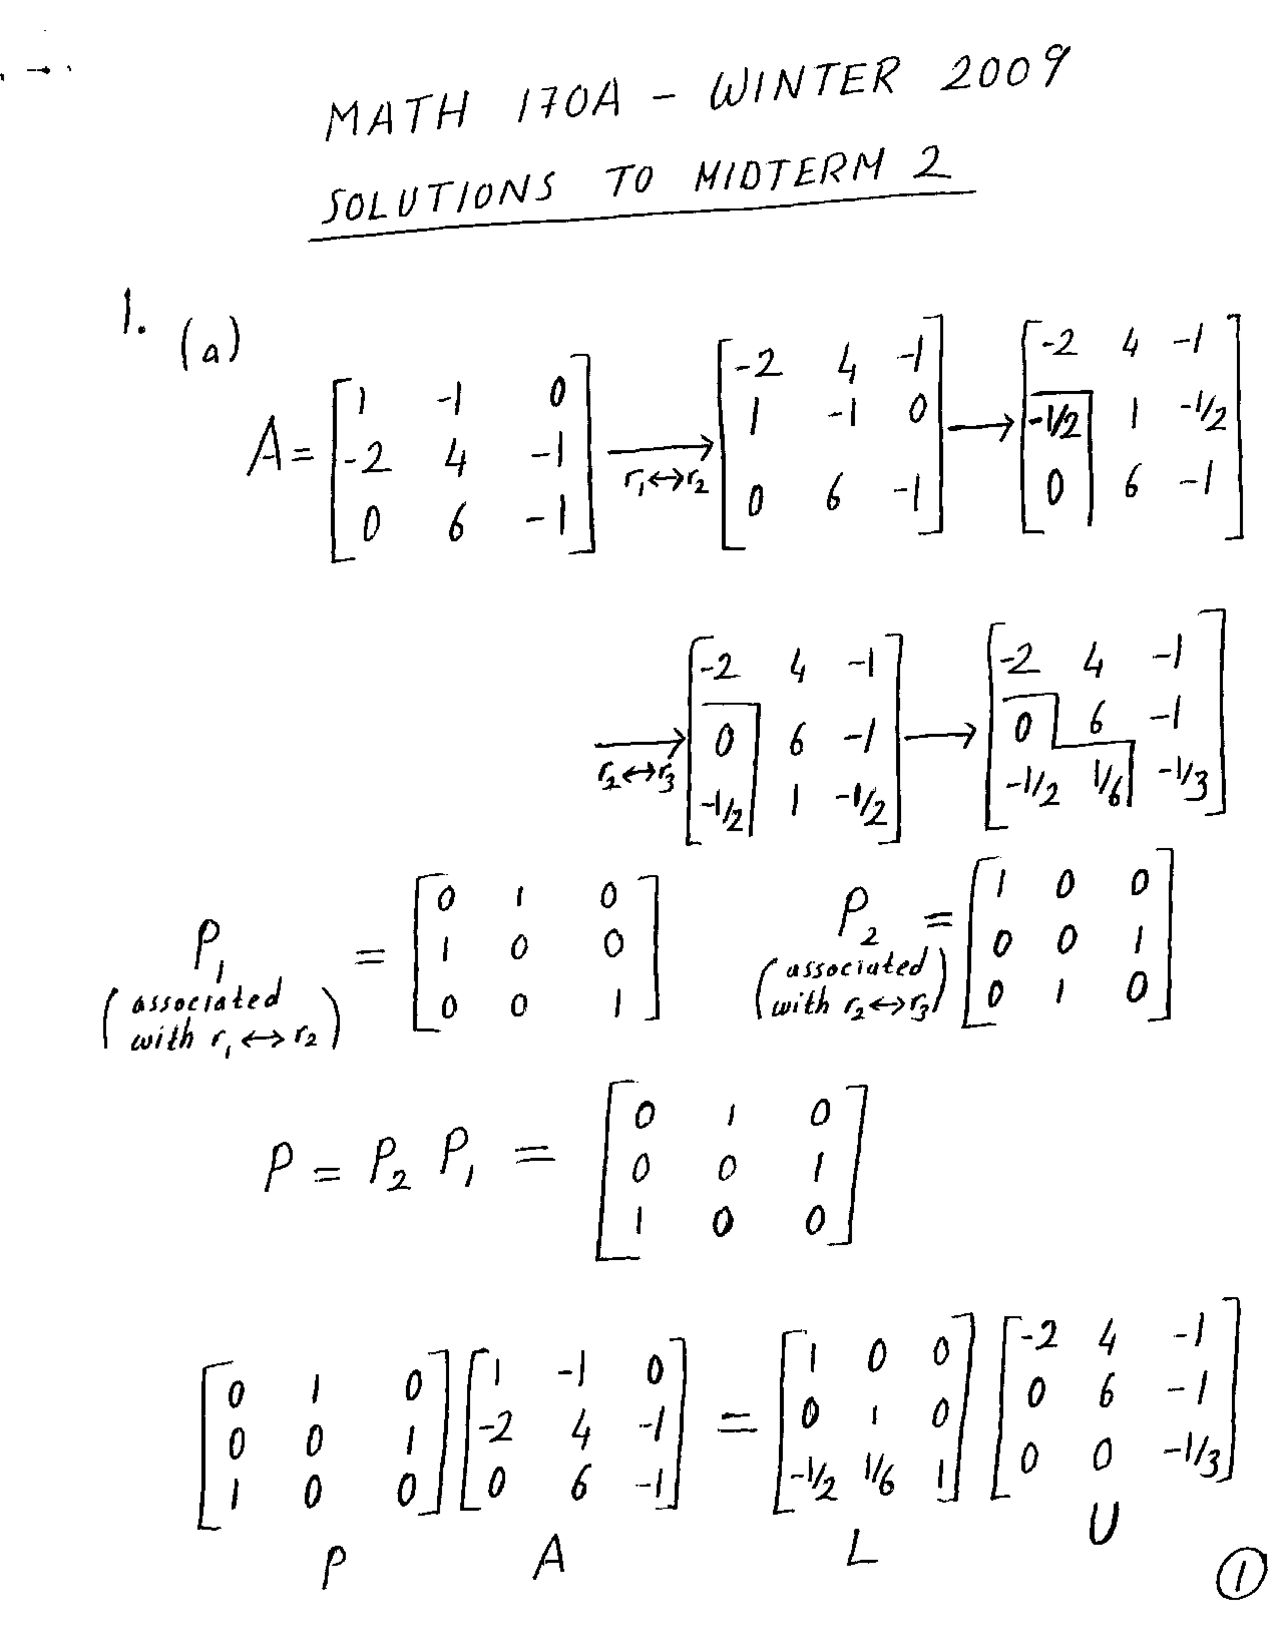 MATH 170A - WINTER 2009
SOLUTIONS TO MIDTERM 2
1. (a)
A = [1 -1 0; -2 4 -1; 0 6 -1] → r₁↔r₂ [-2 4 -1; 1 -1 0; 0 6 -1] → [-2 4 -1; -1/2 1 -1/2; 0 6 -1]
→ r₂↔r₃ [-2 4 -1; 0 6 -1; -1/2 1 -1/2] → [-2 4 -1; 0 6 -1; -1/2 1/6 -1/3]
P₁ (associated with r₁↔r₂) = [0 1 0; 1 0 0; 0 0 1] P₂ (associated with r₂↔r₃) = [1 0 0; 0 0 1; 0 1 0]
P = P₂ P₁ = [0 1 0; 0 0 1; 1 0 0]
[0 1 0; 0 0 1; 1 0 0] [1 -1 0; -2 4 -1; 0 6 -1] = [1 0 0; 0 1 0; -1/2 1/6 1] [-2 4 -1; 0 6 -1; 0 0 -1/3]
P A L U
1